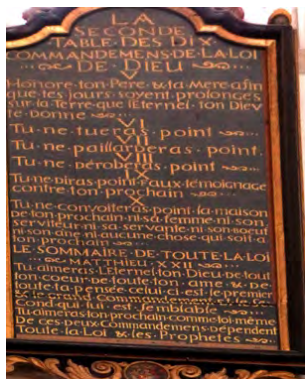 LA
SECONDE
TABLE DES DIX
COMMANDEMENS DE LA LOI
DE DIEU
V
Honore ton Pere & ta Mere afin
que tes jours soyent prolongés
sur la Terre que l'Eternel ton Dieu
te donne
VI
Tu ne tueras point
VII
Tu ne paillarderas point
VIII
Tu ne déroberas point
IX
Tu ne diras point faux témoignage
contre ton prochain
X
Tu ne convoiteras point la maison
de ton prochain ni sa femme ni son
serviteur ni sa servante ni son boeuf
ni son ane ni aucune chose qui soit a
ton prochain
LE SOMMAIRE DE TOUTE LA LOI
MATTHIEU XXII
Tu aimeras L'Eternel ton Dieu de tout
ton coeur de toute ton ame & de
toute ta pensée celui ci est le premier
& le grand Commandement et le se-
Cond qui lui est semblable
Tu aimeras ton prochain comme toi même
De ces deux Commandemens dépendent
Toute la Loi & les Prophetes